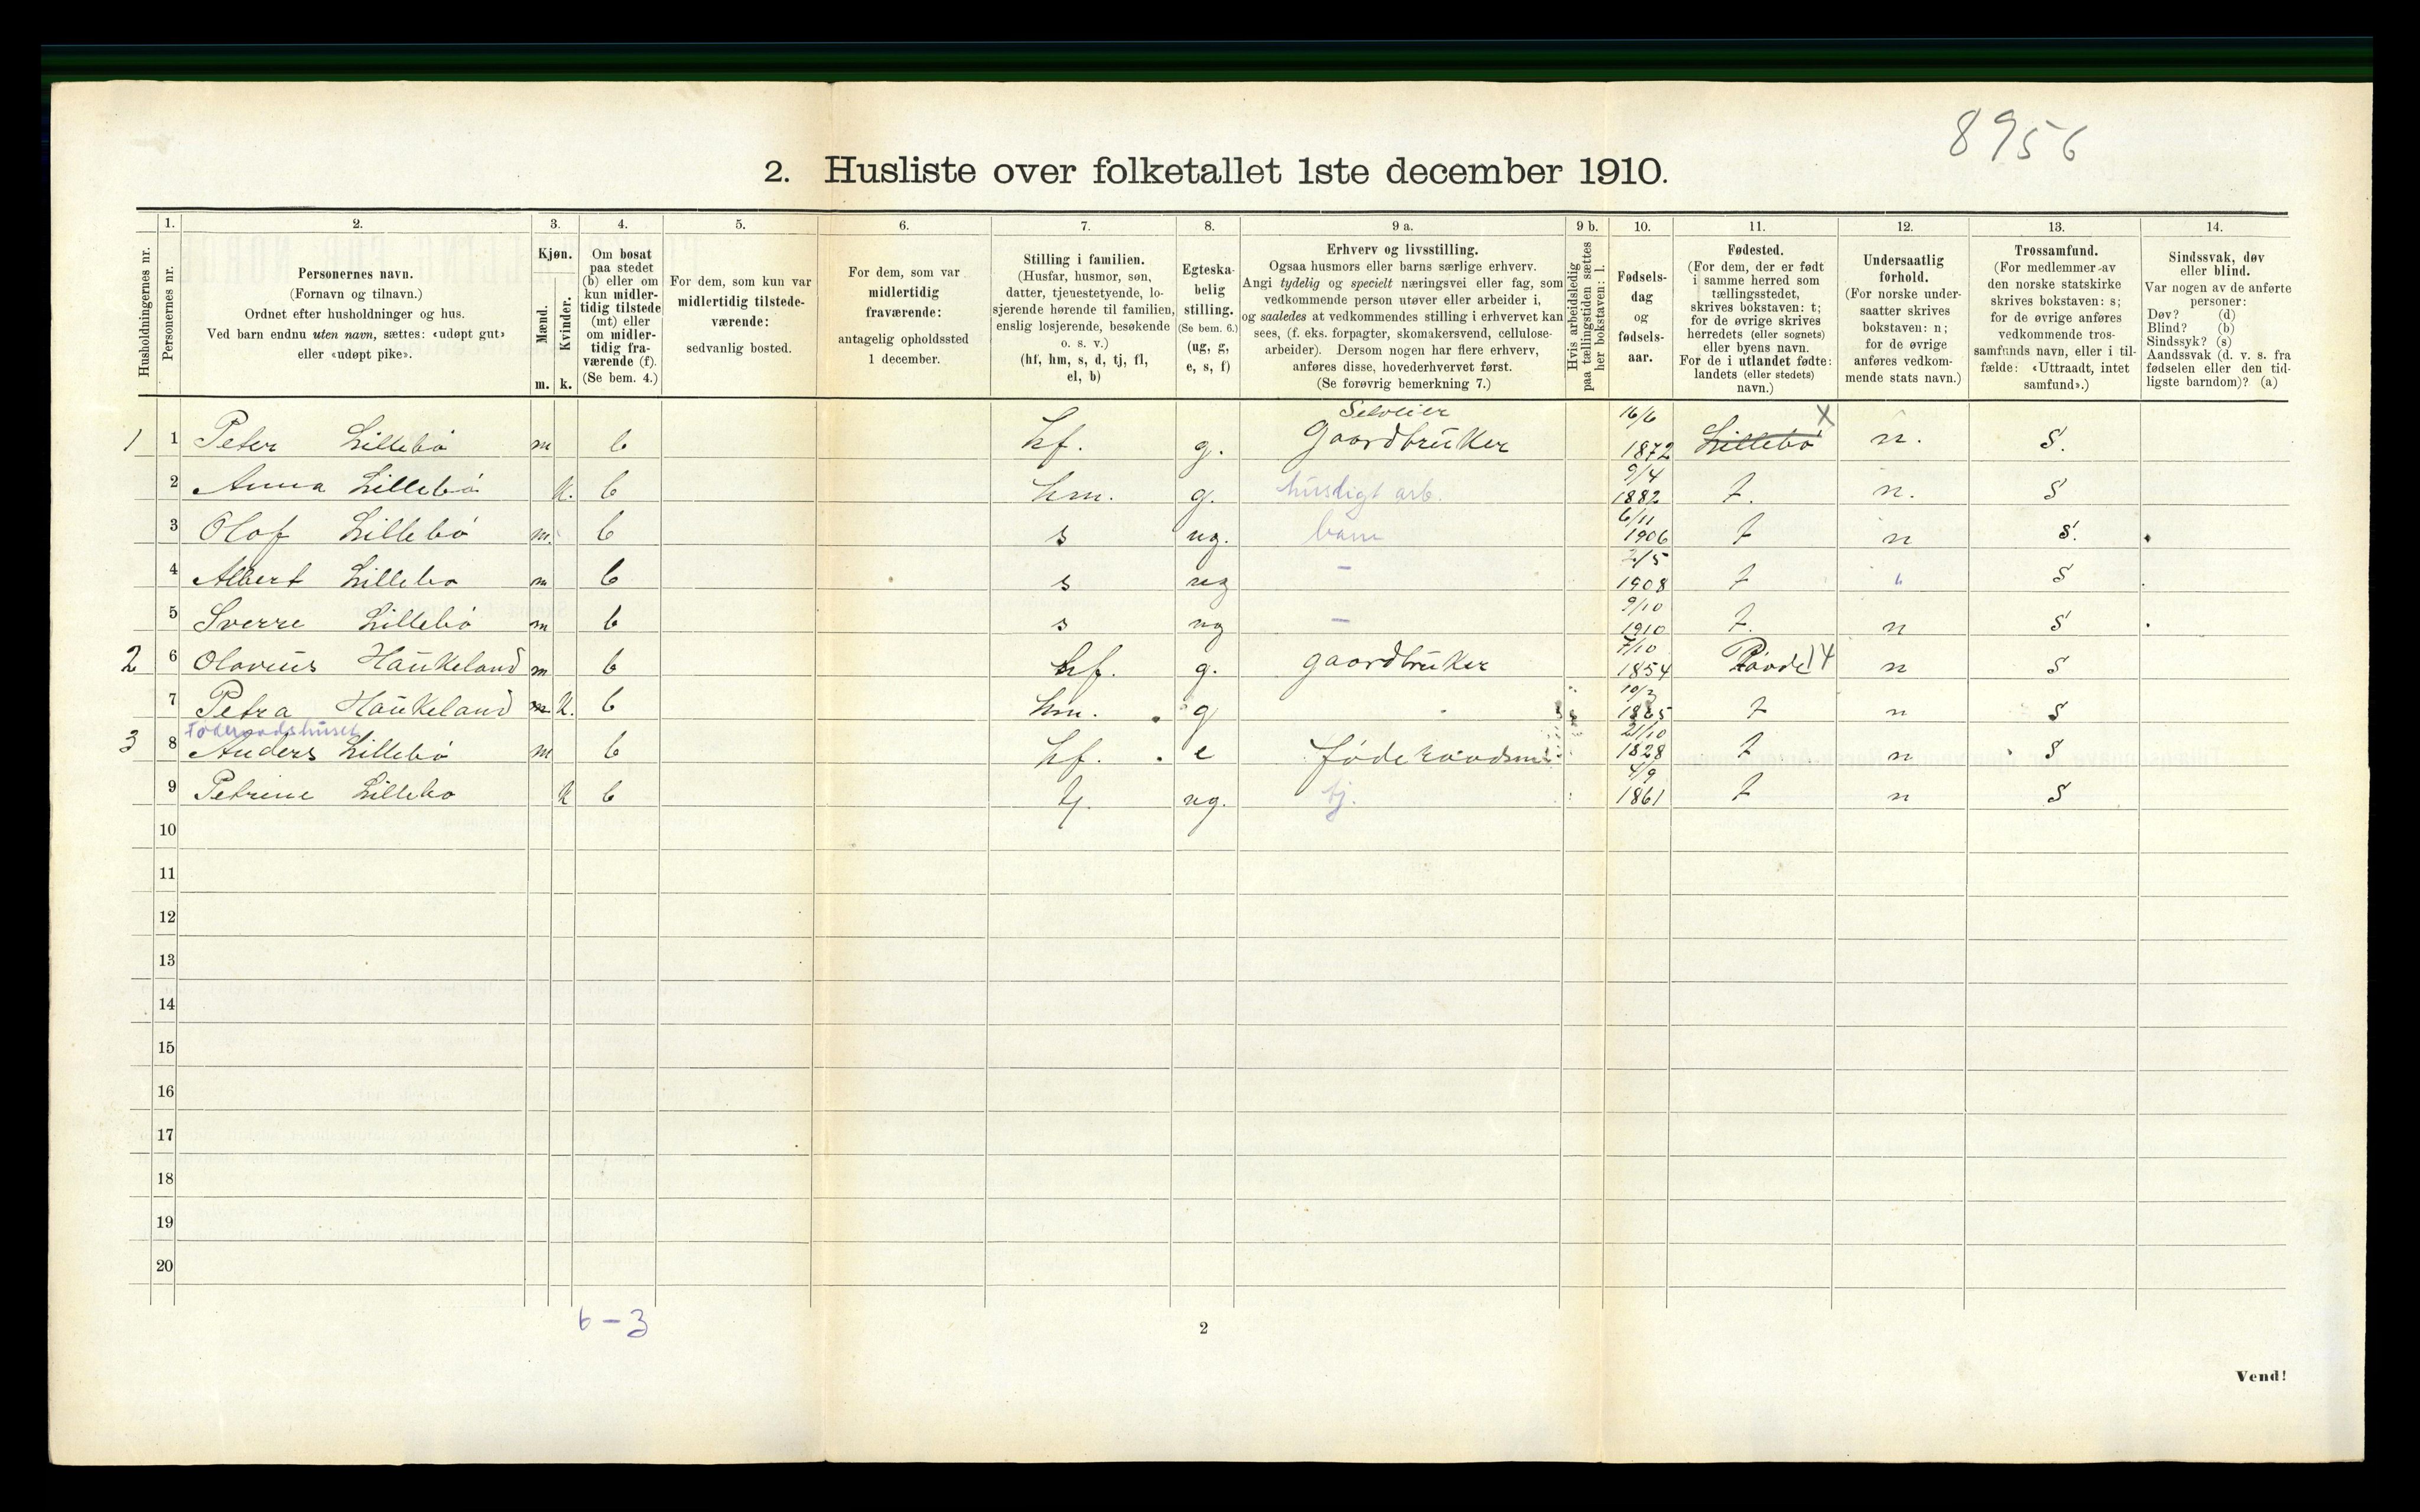 8956
2. Husliste over folketallet 1ste december 1910.
Husholdningernes nr.
1.
Personernes nr.
2.
Personernes navn.
(Fornavn og tilnavn.)
Ordnet efter husholdninger og hus.
Ved barn endnu uten navn, sættes: «udøpt gut»
eller «udøpt pike».
3.
Kjøn.
Mænd.
m.
Kvinder.
k.
4.
Om bosat
paa stedet
(b) eller om
kun midler-
tidig tilstede
(mt) eller
om midler-
tidig fra-
værende (f).
(Se bem. 4.)
5.
For dem, som kun var
midlertidig tilstede-
værende:
sedvanlig bosted.
6.
For dem, som var
midlertidig
fraværende:
antagelig opholdssted
1 december.
7.
Stilling i familien.
(Husfar, husmor, søn,
datter, tjenestetyende, lo-
sjerende hørende til familien,
enslig losjerende, besøkende
o. s. v.)
(hf, hm, s, d, tj, fl,
el, b)
8.
Egteska-
belig
stilling.
(Se bem. 6.)
(ug, g,
e, s, f)
9 a.
Erhverv og livsstilling.
Ogsaa husmors eller barns særlige erhverv.
Angi tydelig og specielt næringsvei eller fag, som
vedkommende person utøver eller arbeider i,
og saaledes at vedkommendes stilling i erhvervet kan
sees, (f. eks. forpagter, skomakersvend, cellulose-
arbeider). Dersom nogen har flere erhverv,
anføres disse, hovederhvervet først.
(Se forøvrig bemerkning 7.)
9 b.
Hvis arbeidsledig
paa tællingstiden sættes
her bokstaven: l.
10.
Fødsels-
dag
og
fødsels-
aar.
11.
Fødested.
(For dem, der er født
i samme herred som
tællingsstedet,
skrives bokstaven: t;
for de øvrige skrives
herredets (eller sognets)
eller byens navn.
For de i utlandet fødte:
landets (eller stedets)
navn.)
12.
Undersaatlig
forhold.
(For norske under-
saatter skrives
bokstaven: n;
for de øvrige
anføres vedkom-
mende stats navn.)
13.
Trossamfund.
(For medlemmer av
den norske statskirke
skrives bokstaven: s;
for de øvrige anføres
vedkommende tros-
samfunds navn, eller i til-
fælde: «Uttraadt, intet
samfund».)
14.
Sindssvak, døv
eller blind.
Var nogen av de anførte
personer:
Døv? (d)
Blind? (b)
Sindssyk? (s)
Aandssvak (d. v. s. fra
fødselen eller den tid-
ligste barndom)? (a)
1 1 Peter Lillebø m b hf. g. Selveier Gaardbruker 16/6 1872 Lillebø X n. S.
2 Anna Lillebø k. b hm. g. husligt arb. 9/4 1882 t. n. S
3 Olaf Lillebø m. b s ug. barn 6/11 1906 t n S.
4 Albert Lillebø m b s ug – 2/5 1908 t " S
5 Sverre Lillebø m b s ug – 9/10 1910 t. n S
2 6 Olavius Haukeland m b hf. g. gaardbruker 7/10 1854 14 n S
7 Petra Haukeland m k. b hm. g 1865 t n S
Føderaadshuset
3 8 Anders Lillebø m b hf. e føderaadsm 21/10 1828 t n S
9 Petrine Lillebø k b tj. ug. tj. 4/9 1861 t n S
10
11
12
13
14
15
16
17
18
19
20
6 – 3
2
Vend!